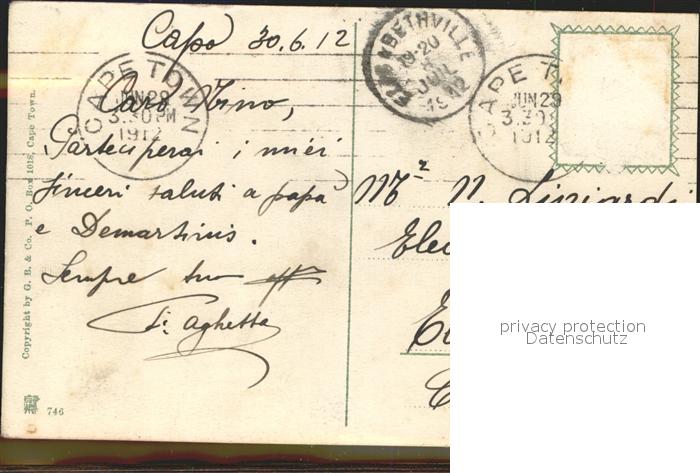 Capo 30.6.12
Caro Nino,
Parteciperai i miei
sinceri saluti a papà
e Demartinis.
Sempre tuo aff
Aghetta
CAPE TOWN
JUN 29
3.30 PM
1912
BETHVILLE
19-20
JUIL
1912
CAPE T
JUN 29
3.30
1912
Mr N.
Elec
Copyright by G. B. & Co. P. O. Box 1018, Cape Town.
746
privacy protection
Datenschutz